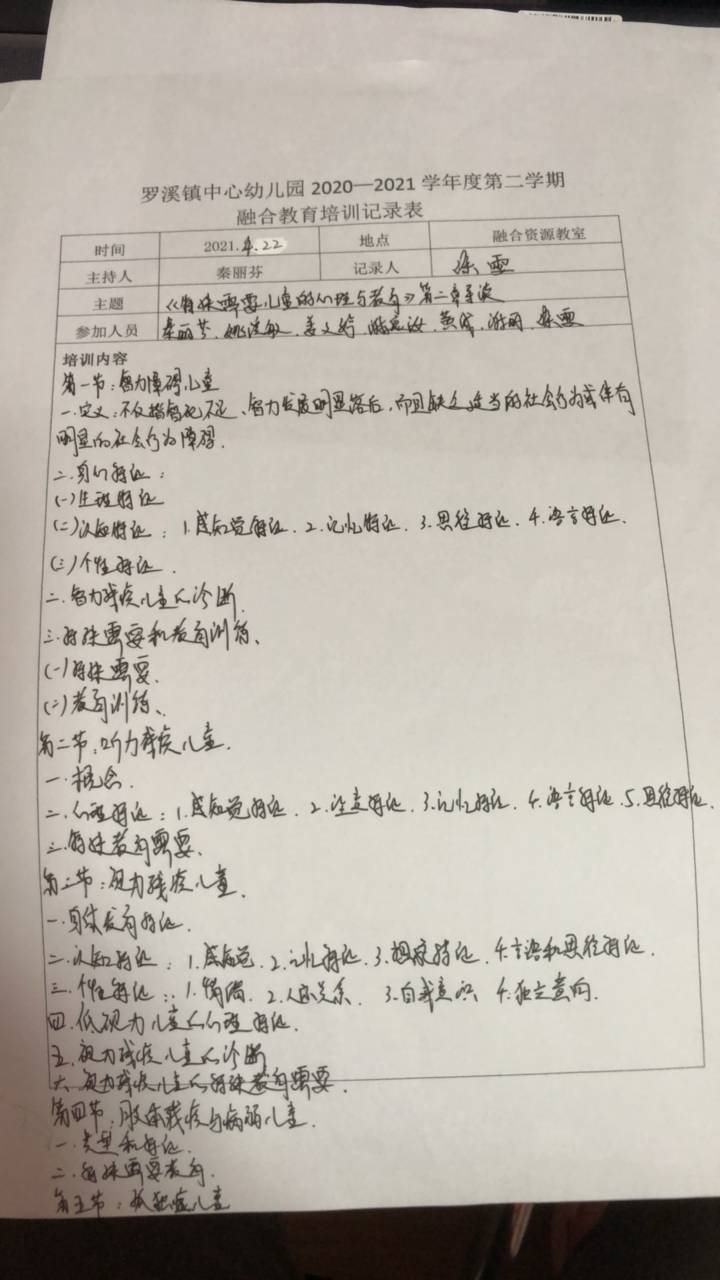 罗溪镇中心幼儿园 2020—2021 学年度第二学期
融合教育培训记录表
时间 2021.4.22 地点 融合资源教室
主持人 秦丽芬 记录人
主题 《特殊需要儿童的心理与教育》第二章导读
参加人员 秦丽芬、
培训内容
第一节：智力障碍儿童
一.定义：不仅指智力不足、智力发展明显落后，而且缺乏适当的社会行为或伴有
明显的社会行为障碍.
二.身心特征：
(一)生理特征
(二)认知特征：1.感知觉特征、2.记忆特征、3.思维特征、4.语言特征.
(三)个性特征.
二.智力残疾儿童的诊断
三.特殊需要和教育训练、
(一)特殊需要.
(二)教育训练、
第二节：听力残疾儿童.
一.概念.
二.心理特征：1.感知觉特征、2.注意特征、3.记忆特征、4.语言特征、5.思维特征.
三.特殊教育需要.
第三节：视力残疾儿童.
一.身体发育特征.
二.认知特征：1.感知觉、2.记忆特征、3.想象特征、4.言语和思维特征.
三.个性特征：1.情绪、2.人际关系、3.自我意识 4.独立意向.
四.低视力儿童的心理特征.
五.视力残疾儿童的诊断
六.视力残疾儿童的特殊教育需要.
第四节：肢体残疾与病弱儿童.
一.类型和特征.
二.特殊需要教育.
第五节：孤独症儿童